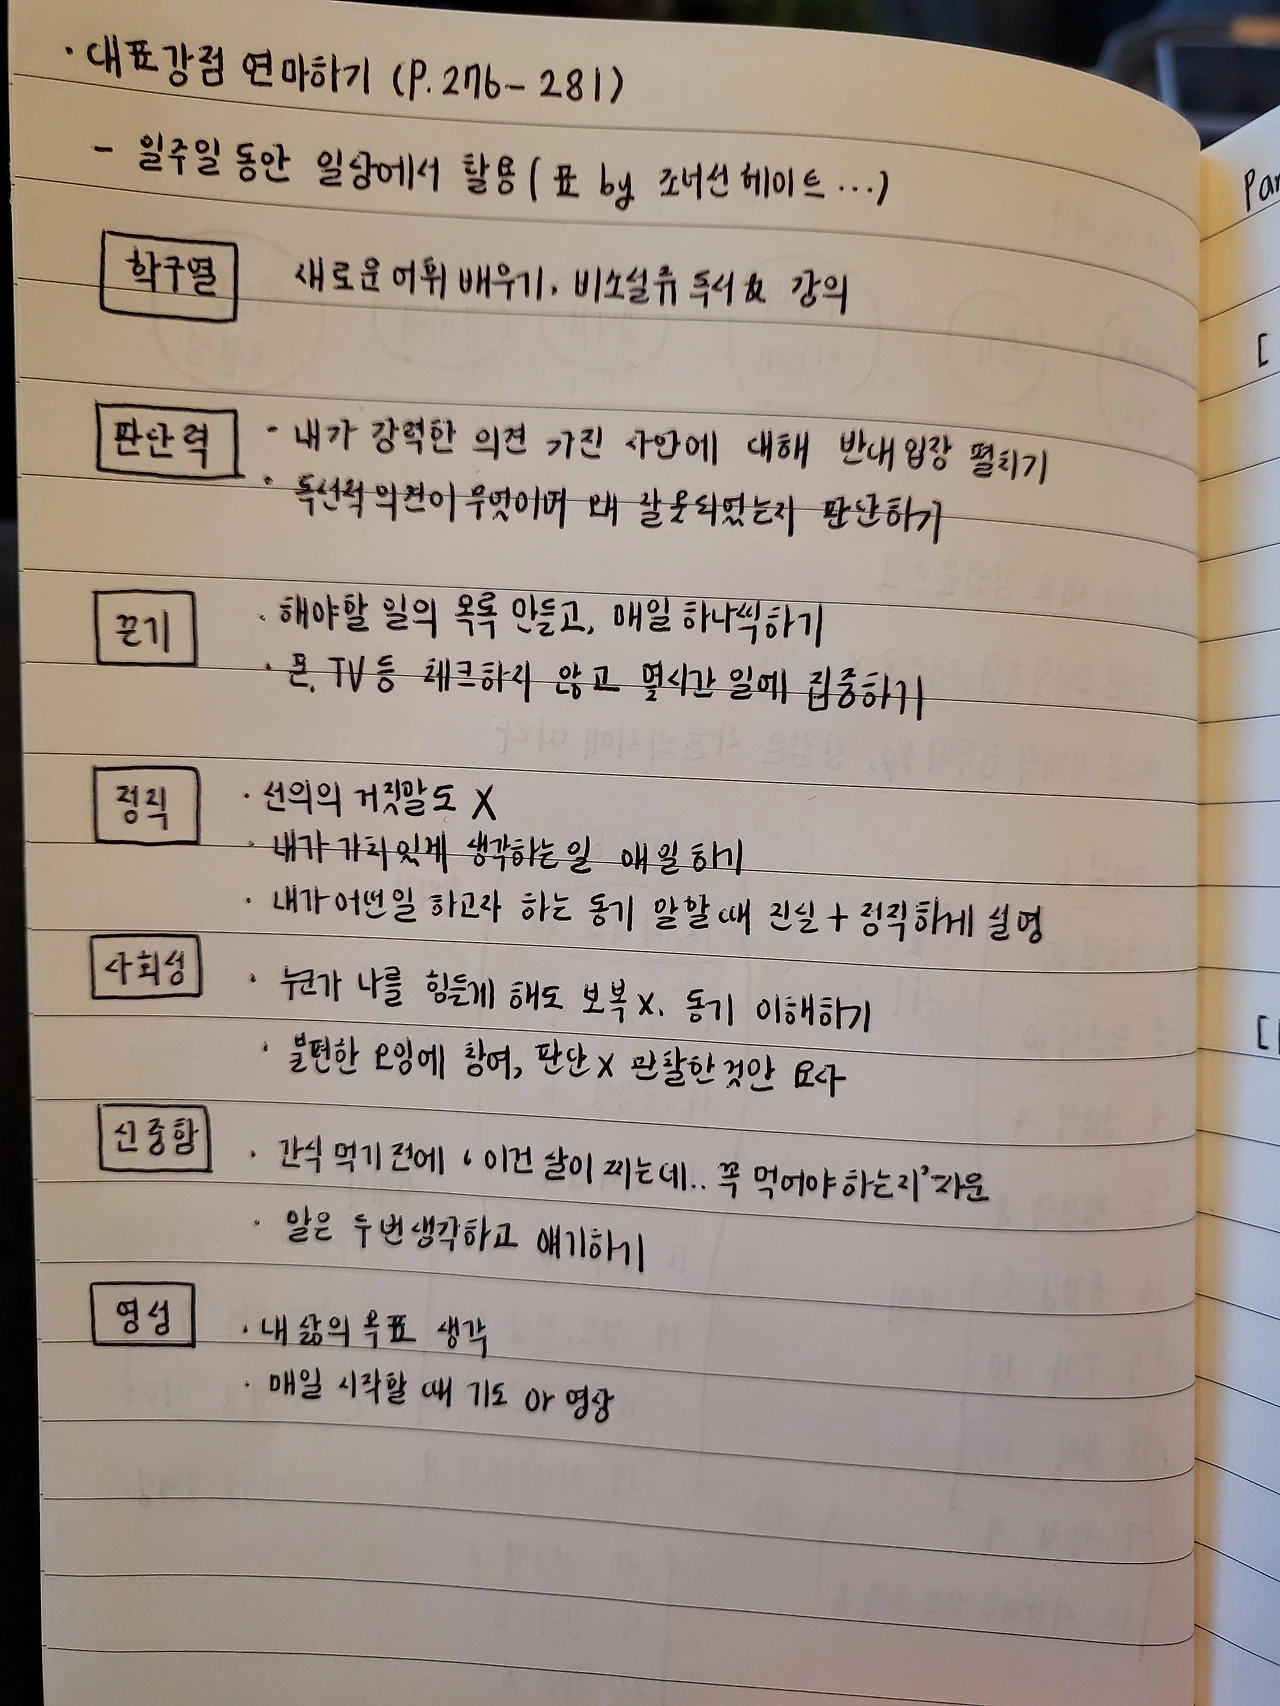 · 대표강점 연마하기 (P.276- 281)
- 일주일 동안 일상에서 활용 ( 표 by 조너선 헤이트 ...)
학구열 새로운 어휘 배우기, 비소설류 독서 & 강의
판단력 · 내가 강력한 의견 가진 사안에 대해 반대 입장 펼치기
· 독선적 의견이 무엇이며 왜 잘못되었는지 판단하기
끈기 · 해야할 일의 목록 만들고, 매일 하나씩하기
· 폰, TV 등 체크하지 않고 몇시간 일에 집중하기
정직 · 선의의 거짓말도 X
· 내가 가치있게 생각하는 일 매일 하기
· 내가 어떤일 하고자 하는 동기 말할 때 진실 + 정직하게 설명
사회성 · 누군가 나를 힘들게 해도 보복 X. 동기 이해하기
· 불편한 모임에 참여, 판단 X 관찰한 것만 묘사
신중함 · 간식 먹기 전에 ' 이건 살이 찌는데.. 꼭 먹어야 하는지' 자문
· 말은 두 번 생각하고 얘기하기
영성 · 내 삶의 목표 생각
· 매일 시작할 때 기도 or 명상
Par
[
[